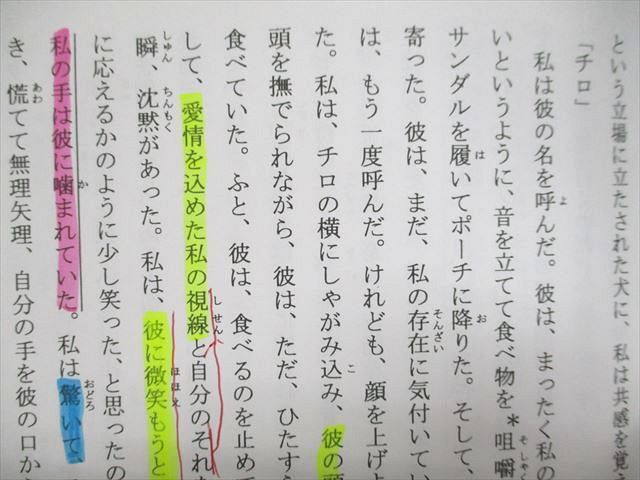 という立場に立たされた犬に、私は共感を覚え
「チロ」
私は彼の名を呼んだ。彼は、まったく私の
いというように、音を立てて食べ物を*咀嚼
サンダルを履いてポーチに降りた。そして、
寄った。彼は、まだ、私の存在に気付いてい
は、もう一度呼んだ。けれども、顔を上げよ
た。私は、チロの横にしゃがみ込み、彼の頭
頭を撫でられながら、彼は、ただ、ひたすら
食べていた。ふと、彼は、食べるのを止めて
して、愛情を込めた私の視線と自分のそれを
瞬、沈黙があった。私は、彼に微笑もうと
に応えるかのように少し笑った、と思ったの
私の手は彼に噛まれていた。私は驚いて、
き、慌てて無理矢理、自分の手を彼の口か